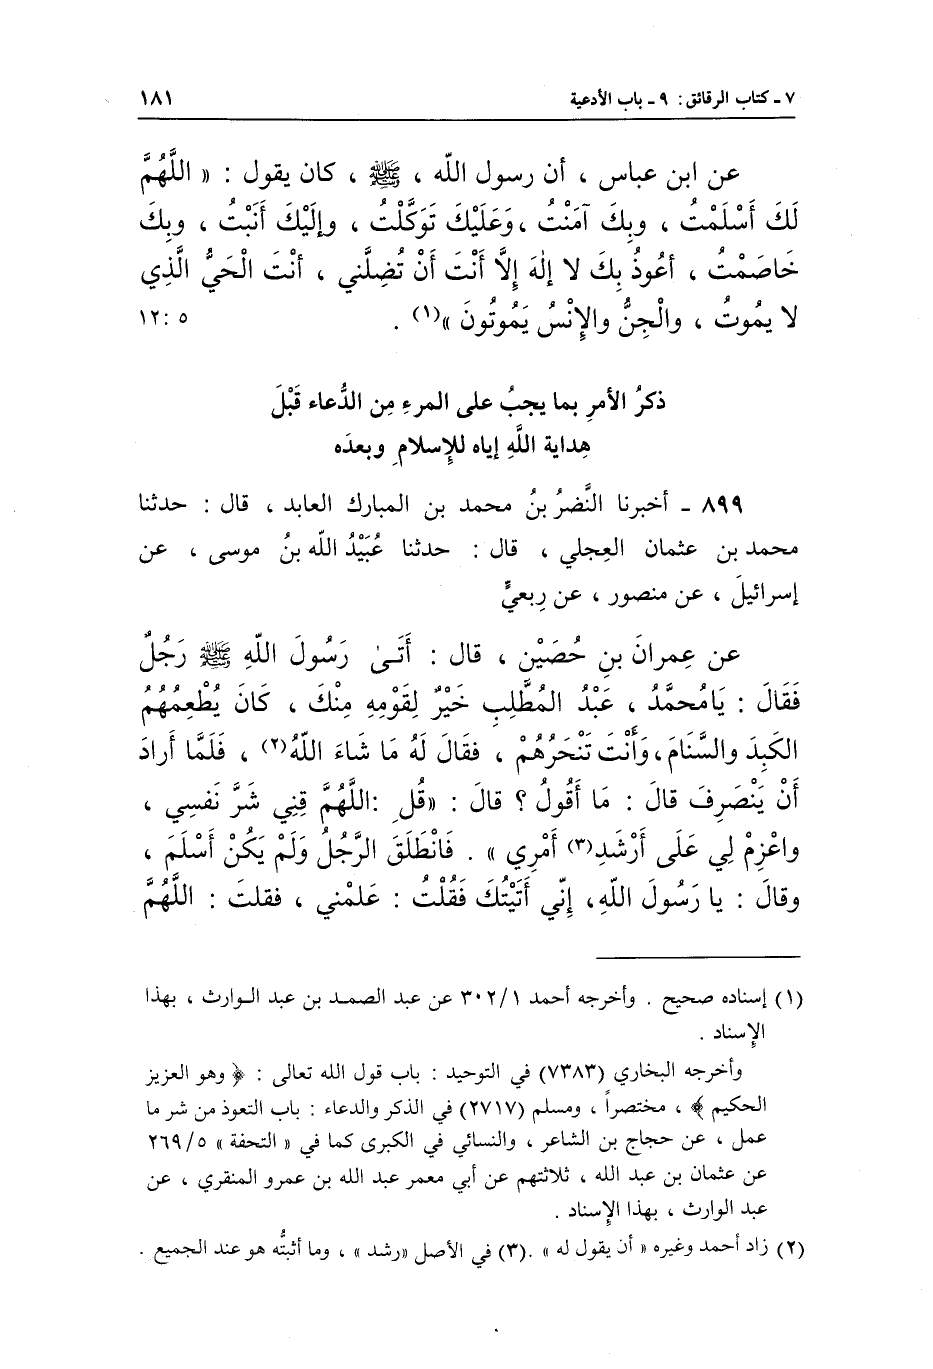 ٧ ـ كتاب الرقائق : ٩ ـ باب الأدعية ١٨١
عن ابن عباس ، أن رسول اللّه ، ﷺ ، كان يقول : « اللَّهُمَّ
لَكَ أَسْلَمْتُ ، وبِكَ آمَنْتُ ،وَعَلَيْكَ تَوَكَّلْتُ ، وإلَيْكَ أَنَبْتُ ، وبِكَ
خَاصَمْتُ ، أعُوذُ بِكَ لا إلٰهَ إلَّا أَنْتَ أَنْ تُضِلَّني ، أنْتَ الْحَيُّ الَّذِي
لا يمُوتُ ، والْجِنُّ والإنْسُ يَمُوتُونَ »(١) . ٥ :١٢
ذكرُ الأمرِ بما يجبُ على المرءِ مِن الدُّعاء قَبْلَ
هِداية اللَّهِ إياه للإِسلامِ وبعدَه
٨٩٩ ـ أخبرنا النَّضرُ بنُ محمد بن المبارك العابد ، قال : حدثنا
محمد بن عثمان العِجلي ، قال : حدثنا عُبَيْدُ اللّه بنُ موسى ، عن
إسرائيلَ ، عن منصور ، عن رِبعيٍّ
عن عِمرانَ بنِ حُصَيْن ، قال : أَتَىٰ رَسُولَ اللّهِ ﷺ رَجُلٌ
فَقَالَ : يَامُحمَّدُ ، عَبْدُ المُطَّلِبِ خَيْرٌ لِقَوْمِهِ مِنْكَ ، كَانَ يُطْعِمُهُمُ
الكَبِدَ والسَّنَامَ،وَأَنْتَ تَنْحَرُهُمْ ، فقَالَ لَهُ مَا شَاءَ اللّهُ(٢) ، فَلَمَّا أَرادَ
أَنْ يَنْصَرِفَ قالَ : مَا أَقُولُ ؟ قالَ : «قُلِ :اللَّهُمَّ قِنِي شَرَّ نَفسِي ،
واعْزِمْ لِي عَلَى أَرْشَدِ(٣) أمْرِي » . فَانْطَلَقَ الرَّجُلُ وَلَمْ يَكُنْ أَسْلَمَ ،
وقالَ : يا رَسُولَ اللّهِ، إنّي أَتَيْتُكَ فَقُلْتُ : عَلِمْني ، فقلتَ : اللَّهُمَّ
(١) إسناده صحيح . وأخرجه أحمد ٣٠٢/١ عن عبد الصمد بن عبد الوارث ، بهذا
الإِسناد .
وأخرجه البخاري (٧٣٨٣) في التوحيد : باب قول الله تعالى : ﴿ وهو العزيز
الحكيم ﴾ ، مختصراً ، ومسلم (٢٧١٧) في الذكر والدعاء : باب التعوذ من شر ما
عمل ، عن حجاج بن الشاعر ، والنسائي في الكبرى كما في « التحفة » ٢٦٩/٥
عن عثمان بن عبد الله ، ثلاثتهم عن أبي معمر عبد الله بن عمرو المنقري ، عن
عبد الوارث ، بهذا الإِسناد .
(٢) زاد أحمد وغيره « أن يقول له » .(٣) في الأصل «رشد » ، وما أثبتُّه هو عند الجميع .